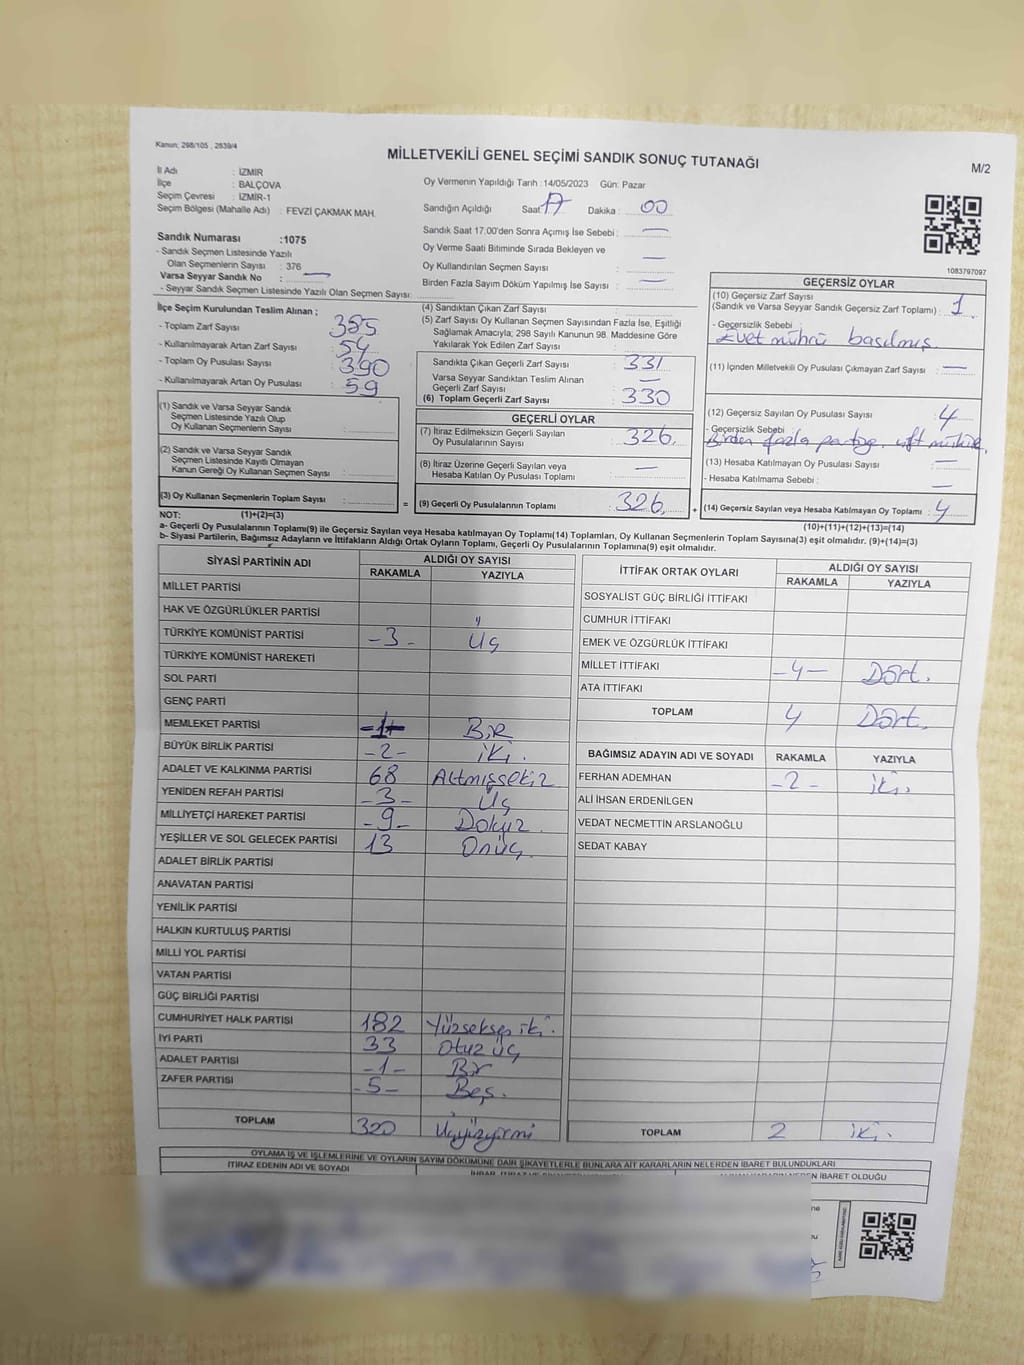 Kanun; 298/105 , 2839/4
MİLLETVEKİLİ GENEL SEÇİMİ SANDIK SONUÇ TUTANAĞI
M/2
İl Adı : İZMİR
İlçe : BALÇOVA
Seçim Çevresi : İZMİR-1
Seçim Bölgesi (Mahalle Adı) : FEVZİ ÇAKMAK MAH.
Sandık Numarası :1075
- Sandık Seçmen Listesinde Yazılı
Olan Seçmenlerin Sayısı : 376
Varsa Seyyar Sandık No : —
- Seyyar Sandık Seçmen Listesinde Yazılı Olan Seçmen Sayısı:
Oy Vermenin Yapıldığı Tarih :14/05/2023 Gün: Pazar
Sandığın Açıldığı Saat: 17 Dakika : 00
Sandık Saat 17:00'den Sonra Açımış İse Sebebi : —
Oy Verme Saati Bitiminde Sırada Bekleyen ve —
Oy Kullandırılan Seçmen Sayısı :
Birden Fazla Sayım Döküm Yapılmış İse Sayısı : —
1083797097
İlçe Seçim Kurulundan Teslim Alınan ;
- Toplam Zarf Sayısı : 385
- Kullanılmayarak Artan Zarf Sayısı : 54
- Toplam Oy Pusulası Sayısı : 390
- Kullanılmayarak Artan Oy Pusulası : 59
(1) Sandık ve Varsa Seyyar Sandık
Seçmen Listesinde Yazılı Olup
Oy Kullanan Seçmenlerin Sayısı :
(2) Sandık ve Varsa Seyyar Sandık
Seçmen Listesinde Kayıtlı Olmayan
Kanun Gereği Oy Kullanan Seçmen Sayısı :
(3) Oy Kullanan Seçmenlerin Toplam Sayısı :
(4) Sandıktan Çıkan Zarf Sayısı :
(5) Zarf Sayısı Oy Kullanan Seçmen Sayısından Fazla İse, Eşitliği
Sağlamak Amacıyla; 298 Sayılı Kanunun 98. Maddesine Göre
Yakılarak Yok Edilen Zarf Sayısı :
Sandıkta Çıkan Geçerli Zarf Sayısı : 331
Varsa Seyyar Sandıktan Teslim Alınan
Geçerli Zarf Sayısı : —
(6) Toplam Geçerli Zarf Sayısı : 330
GEÇERLİ OYLAR
(7) İtiraz Edilmeksizin Geçerli Sayılan
Oy Pusulalarının Sayısı : 326
(8) İtiraz Üzerine Geçerli Sayılan veya
Hesaba Katılan Oy Pusulası Toplamı : —
= (9) Geçerli Oy Pusulalarının Toplamı : 326 +
GEÇERSİZ OYLAR
(10) Geçersiz Zarf Sayısı
(Sandık ve Varsa Seyyar Sandık Geçersiz Zarf Toplamı) : 1
- Geçersizlik Sebebi :
Evet mührü basılmış.
(11) İçinden Milletvekili Oy Pusulası Çıkmayan Zarf Sayısı : —
(12) Geçersiz Sayılan Oy Pusulası Sayısı : 4
- Geçersizlik Sebebi :
Birden fazla partiye,
(13) Hesaba Katılmayan Oy Pusulası Sayısı : —
- Hesaba Katılmama Sebebi : —
(14) Geçersiz Sayılan veya Hesaba Katılmayan Oy Toplamı : 4
NOT: (1)+(2)=(3)
(10)+(11)+(12)+(13)=(14)
a- Geçerli Oy Pusulalarının Toplamı(9) ile Geçersiz Sayılan veya Hesaba katılmayan Oy Toplamı(14) Toplamları, Oy Kullanan Seçmenlerin Toplam Sayısına(3) eşit olmalıdır. (9)+(14)=(3)
b- Siyasi Partilerin, Bağımsız Adayların ve İttifakların Aldığı Ortak Oyların Toplamı, Geçerli Oy Pusulalarının Toplamına(9) eşit olmalıdır.
SİYASİ PARTİNİN ADI ALDIĞI OY SAYISI
RAKAMLA YAZIYLA
MİLLET PARTİSİ
HAK VE ÖZGÜRLÜKLER PARTİSİ
TÜRKİYE KOMÜNİST PARTİSİ -3- Üç
TÜRKİYE KOMÜNİST HAREKETİ
SOL PARTİ
GENÇ PARTİ
MEMLEKET PARTİSİ -1- BİR
BÜYÜK BİRLİK PARTİSİ -2- iki.
ADALET VE KALKINMA PARTİSİ 68 Altmışsekiz
YENİDEN REFAH PARTİSİ -3- Üç
MİLLİYETÇİ HAREKET PARTİSİ -9- Dokuz
YEŞİLLER VE SOL GELECEK PARTİSİ 13 Onüç
ADALET BİRLİK PARTİSİ
ANAVATAN PARTİSİ
YENİLİK PARTİSİ
HALKIN KURTULUŞ PARTİSİ
MİLLİ YOL PARTİSİ
VATAN PARTİSİ
GÜÇ BİRLİĞİ PARTİSİ
CUMHURİYET HALK PARTİSİ 182 Yüzseksen iki.
İYİ PARTİ 33 Otuz üç
ADALET PARTİSİ -1- Bir
ZAFER PARTİSİ -5- Beş.
TOPLAM 320 Üçyüzyirmi
İTTİFAK ORTAK OYLARI ALDIĞI OY SAYISI
RAKAMLA YAZIYLA
SOSYALİST GÜÇ BİRLİĞİ İTTİFAKI
CUMHUR İTTİFAKI
EMEK VE ÖZGÜRLÜK İTTİFAKI
MİLLET İTTİFAKI -4- Dört.
ATA İTTİFAKI
TOPLAM 4 Dört.
BAĞIMSIZ ADAYIN ADI VE SOYADI RAKAMLA YAZIYLA
FERHAN ADEMHAN -2- iki.
ALİ İHSAN ERDENİLGEN
VEDAT NECMETTİN ARSLANOĞLU
SEDAT KABAY
TOPLAM 2 iki.
OYLAMA İŞ VE İŞLEMLERİNE VE OYLARIN SAYIM DÖKÜMÜNE DAİR ŞİKAYETLERLE BUNLARA AİT KARARLARIN NELERDEN İBARET BULUNDUKLARI
İTİRAZ EDENİN ADI VE SOYADI
İBARET OLDUĞU